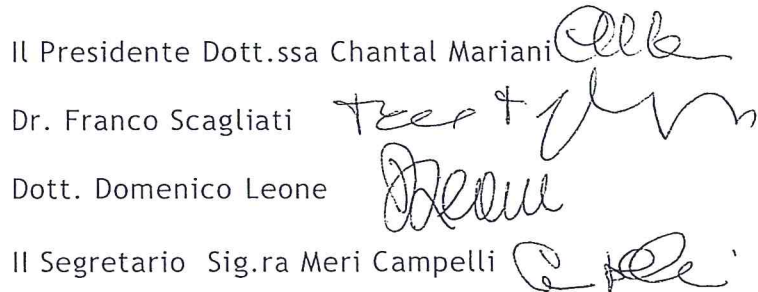 Il Presidente Dott.ssa Chantal Mariani
Dr. Franco Scagliati
Dott. Domenico Leone
Il Segretario Sig.ra Meri Campelli